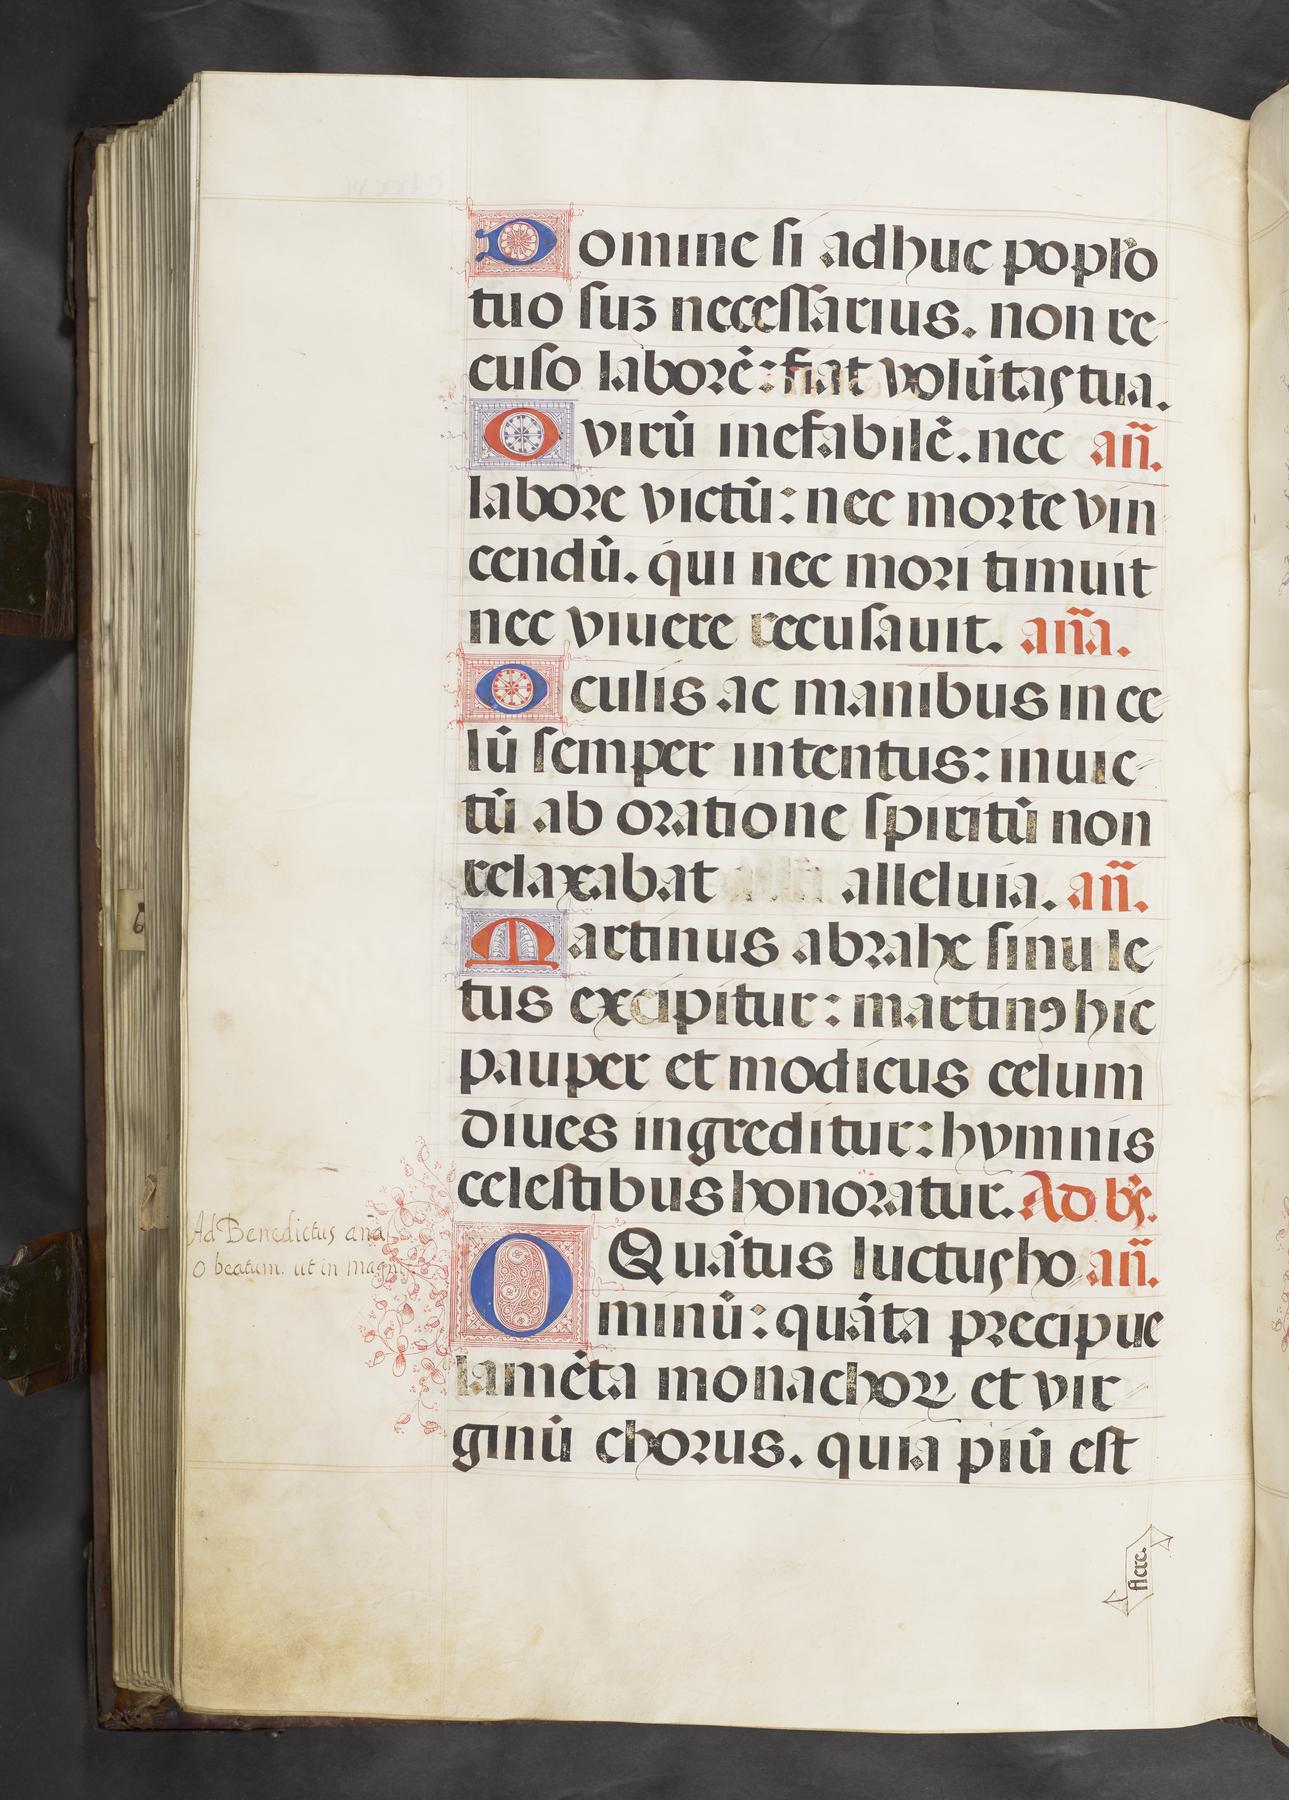 Domine si adhuc popl̃o
tuo suʒ necessarius. non re
cuso laborē: fiat volũtas tua.
O virũ inefabilẽ. nec añ.
labore victũ: nec morte vin
cendũ. qui nec mori timuit
nec viuere recusauit. aña.
Oculis ac manibus in ce
lũ semper intentus: inuic-
tũ ab oratione spiritũ non
relaxabat alleluia. añ.
Martinus abrahe sinu le-
tus excipitur: martinꝯ hic
pauper et modicus celum
diues ingreditur: hymnis
celestibus honoratur. Ad bs̃.
O Quãtus luctus ho añ.
minũ: quãta precipue
lamẽta monachoꝝ et vir
ginũ chorus. quia piũ est
flere.
Ad Benedictus anã
O beatum. ut in magni